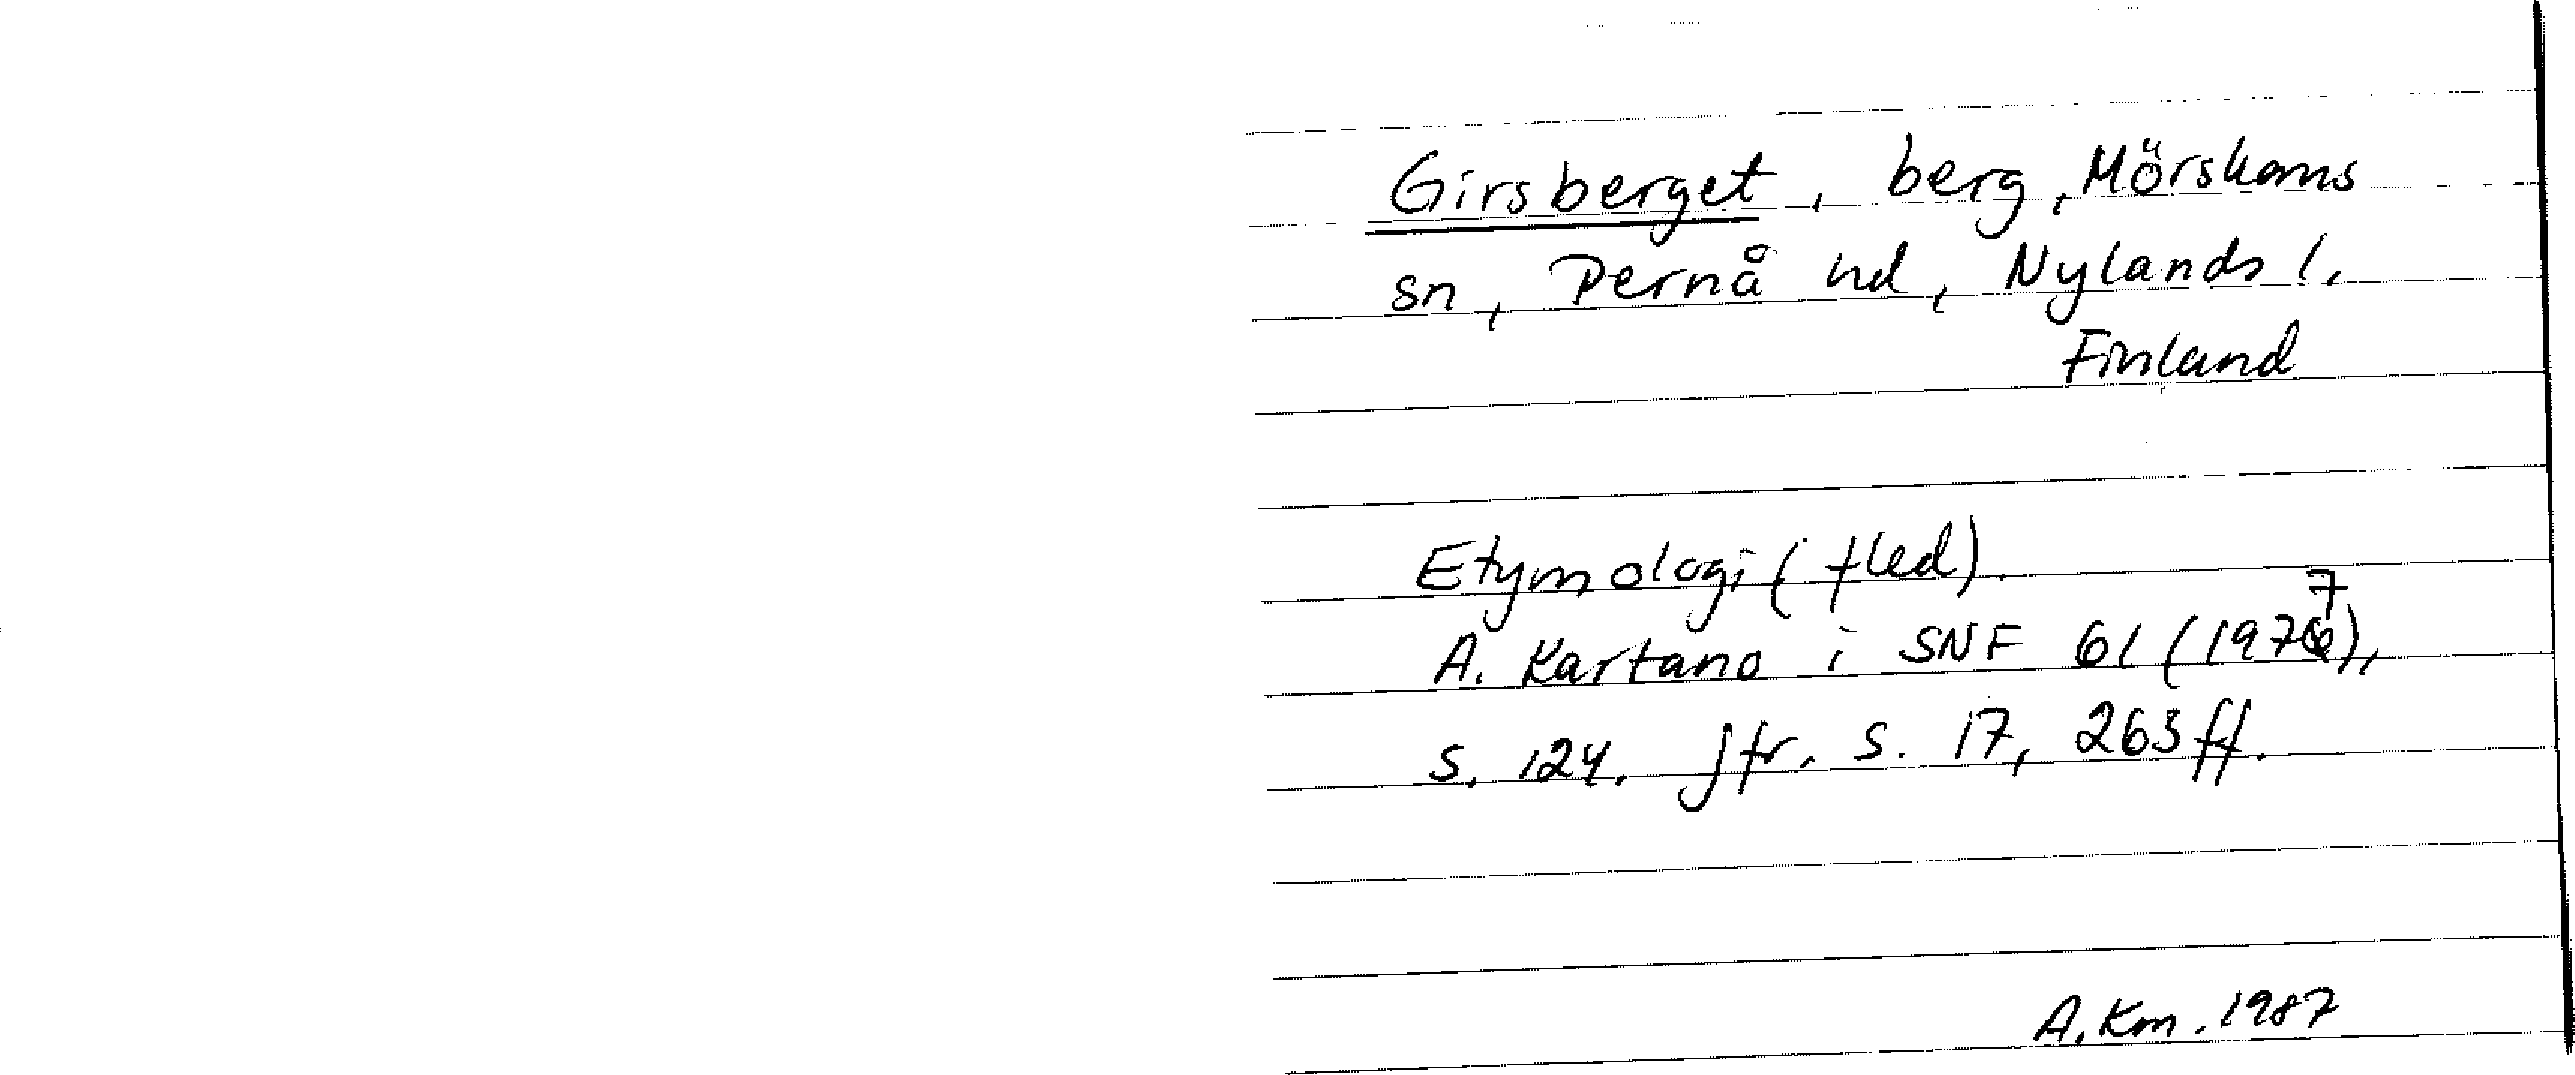 Girsberget, berg, Mörskoms
sn, Pernå hd, Nylands l.
Finland
Etymologi (fled).
A. Kartano i SNF 61 (1977),
s. 124. Jfr. s. 17, 263 ff.
A. Km. 1987